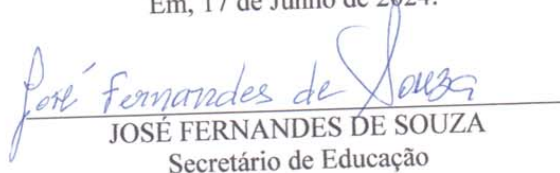 Em, 17 de Junho de 2024.
José Fernandes de Souza
JOSÉ FERNANDES DE SOUZA
Secretário de Educação